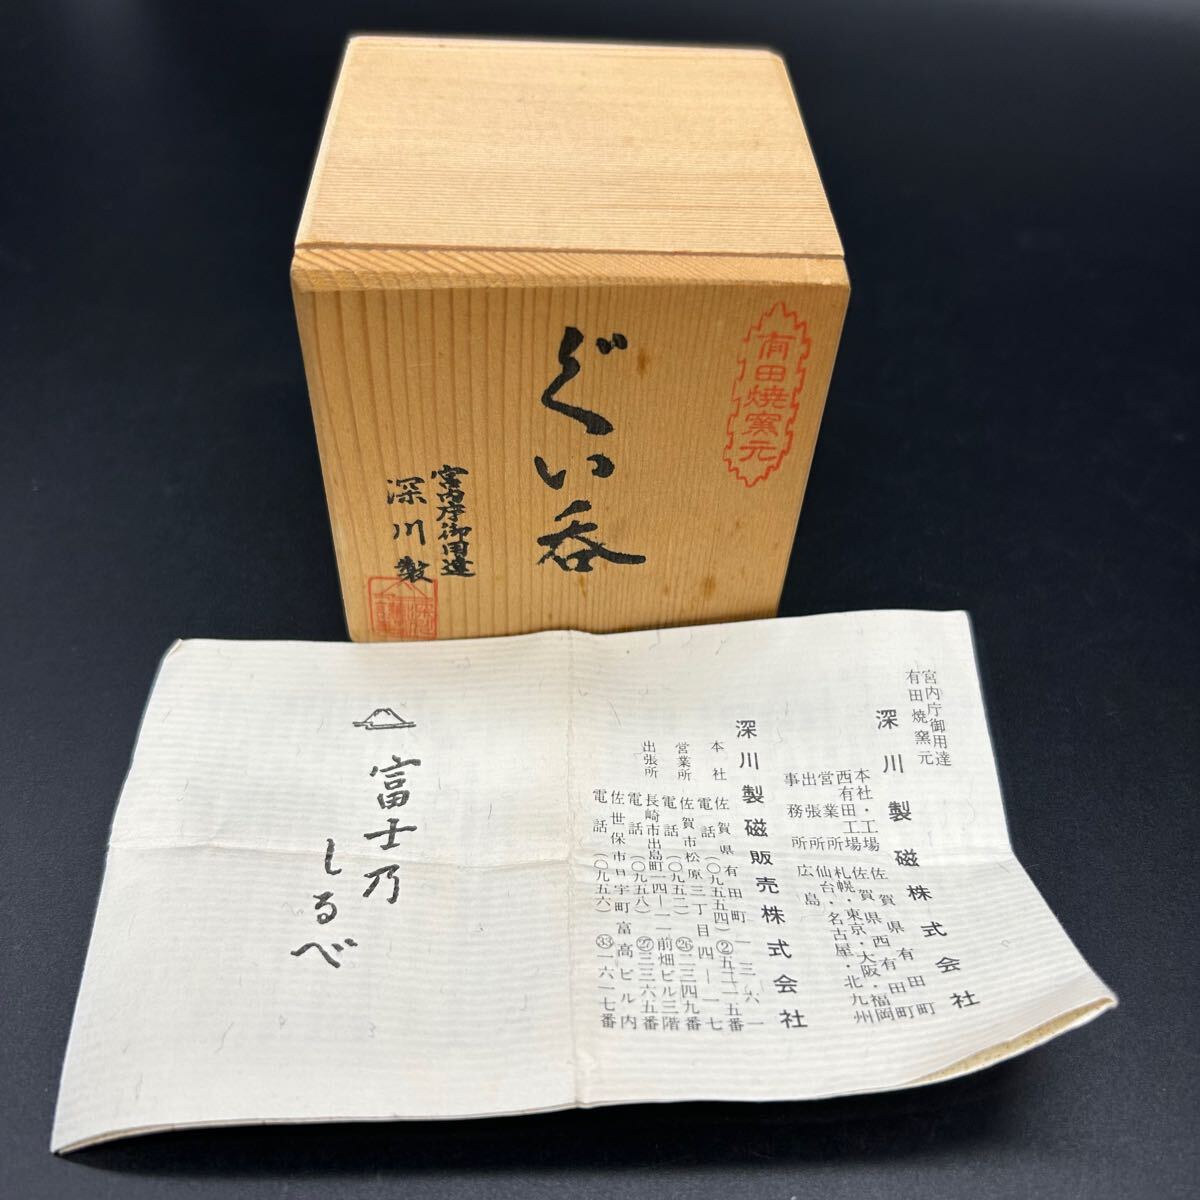 有田焼窯元
ぐい呑
宮内庁御用達
深川製
宮内庁御用達
有田焼窯元
深川製磁株式会社
本社・工場 佐賀県有田町
西有田工場 佐賀県西有田町
営業所 札幌・東京・大阪・福岡
出張所 仙台・名古屋・北九州
事務所 広島
深川製磁販売株式会社
本社 佐賀県有田町一三六一
電話(〇九五五四)②五二一五番
営業所 佐賀市松原三丁目四ー一七
電話(〇九五二)㉖二三四九番
出張所 長崎市出島町一四ー一一前畑ビル三階
電話(〇九五八)㉗二三六五番
佐世保市日宇町富高ビル内
電話(〇九五六)㉝一六一七番
富士乃
しるべ